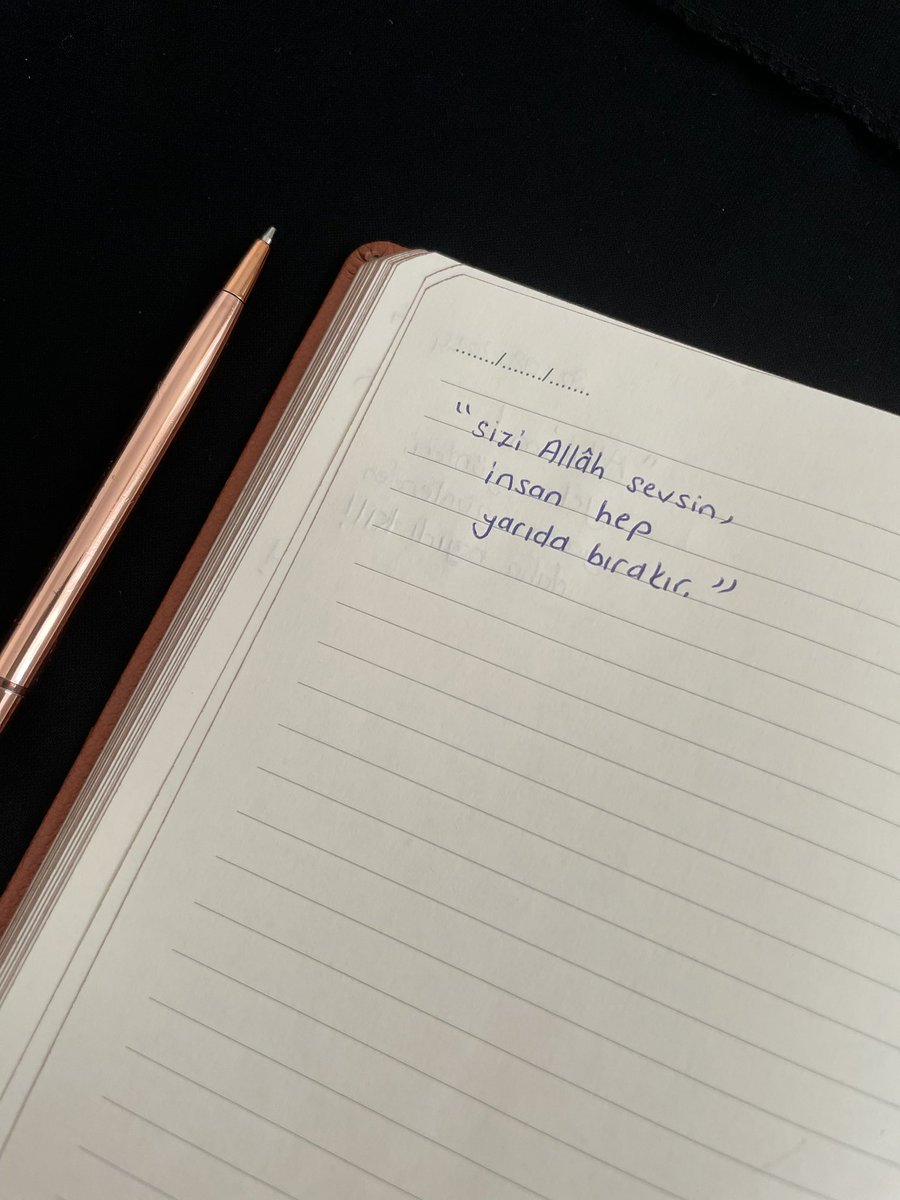 ......./......./.......
“sizi Allâh sevsin,
insan hep
yarıda bırakır.”